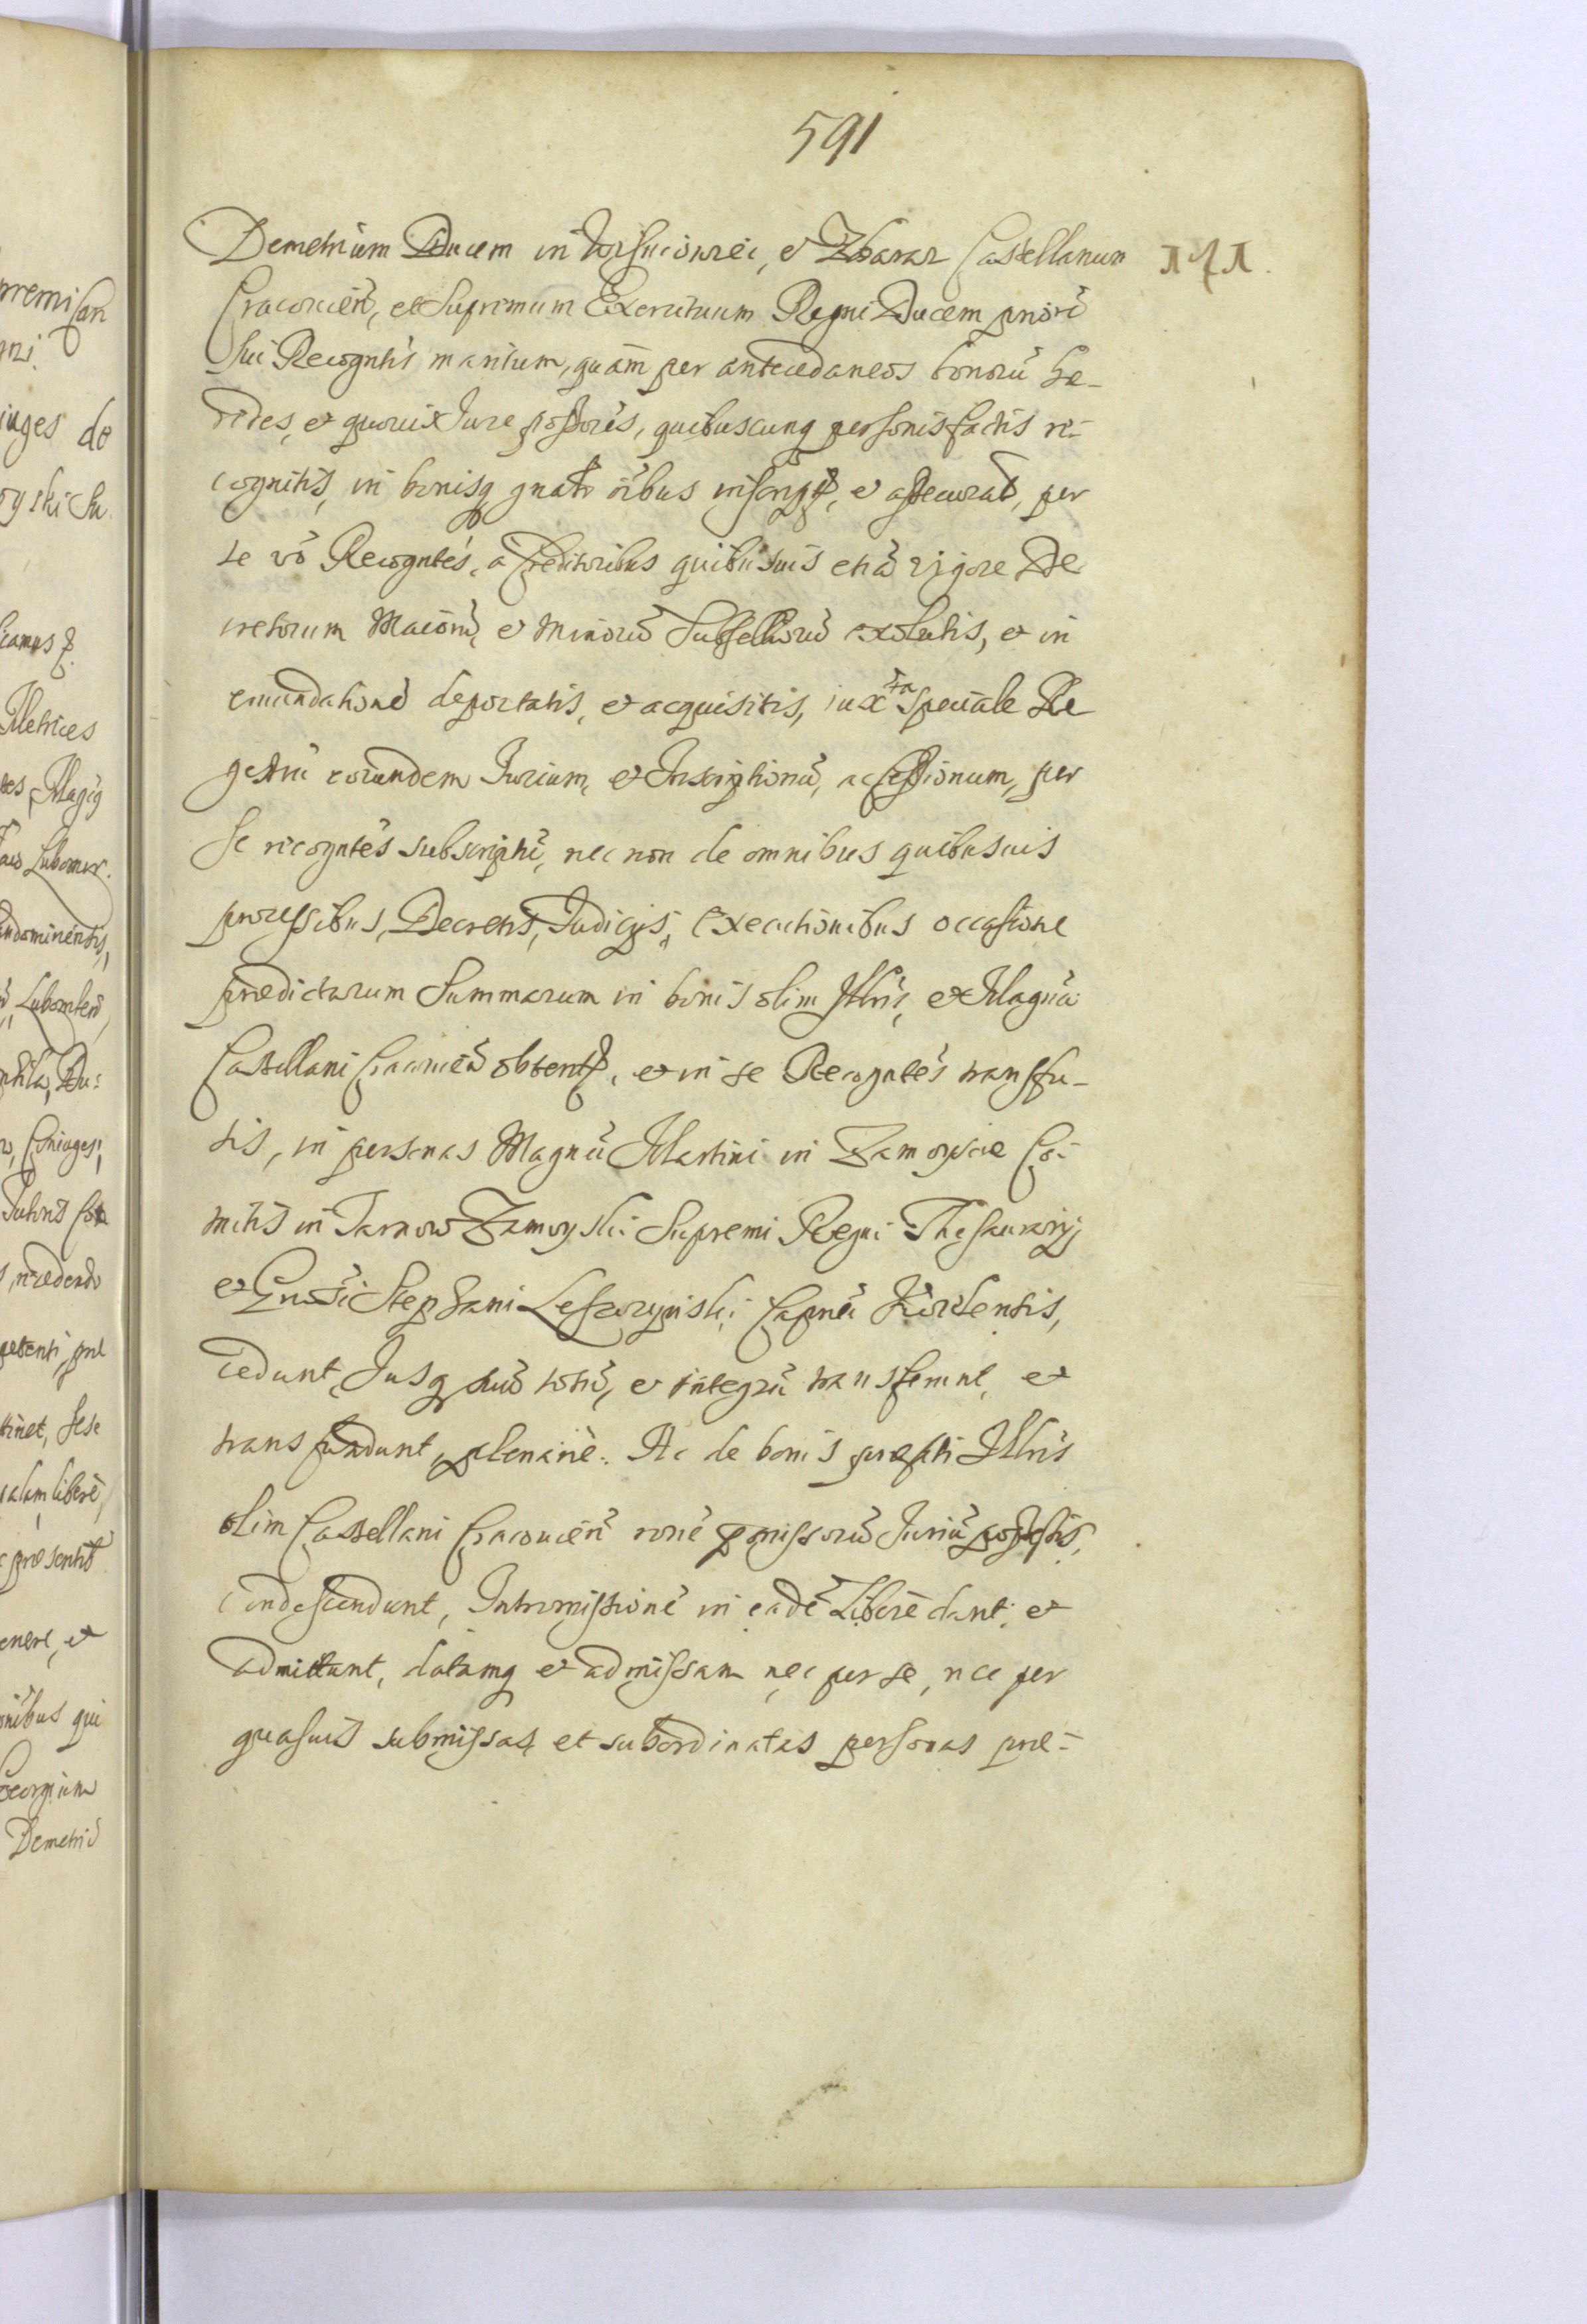 591
Demetrium Ducem in Wisniowiec, et Zbaraz Castellanum
Cracovien̄, et Supremum Exercituum Regni Ducem priorē
sui Recogntis maritum, quām per antecedaneos bonorū he-
redes, et quovis Jure possores, quibuscunq personis factis re-
cognitis, in bonisq gnatr oībus inscript, et assecurat, per
se vō Recogntes, a Creditoribus quibusvis etiā vigore De
cretorum Maiorū, et Minorū Subselliorū exolutis, et in
emundationē deportatis, et acquisitis, iuxta speciale Re
gestrū eorundem Jurium, et Inscriptionū, ac Cessionum, per
se recogntes subscriptū, nec non de omnibus quibusvis
processibus, Decretis, Judicijs, Executionibus occasione
prædictarum Summarum in bonis olim Illris, et Magnci
Castellani Cracovien̄ obtent, et in se Recogntes transfu-
sis, in personas Magnci Martini in Zamoyscie Co-
mitis in Tarnow Zamoyski Supremi Regni Thesaurarij
et Gnosi Stephani Leszczynski Capnei Kordensis,
cedunt, Jusq suū totū, et integrū transferunt, et
transfundunt, plenarie. Ac de bonis præfati Illris
olim Castellani Cracovien̄ rone præmissorū Juriū possessis,
condescendunt, Intromissionē in eadē Libere dant, et
admittunt, datamq et admissam nec per se, nec per
quasvis submissas et subordinatas personas præ-
premi Can
iuges de
oyski Su
Lubomir.
Lubomlen̄
præsentib
enere, et
omnibus qui
Georgium
Demetriū